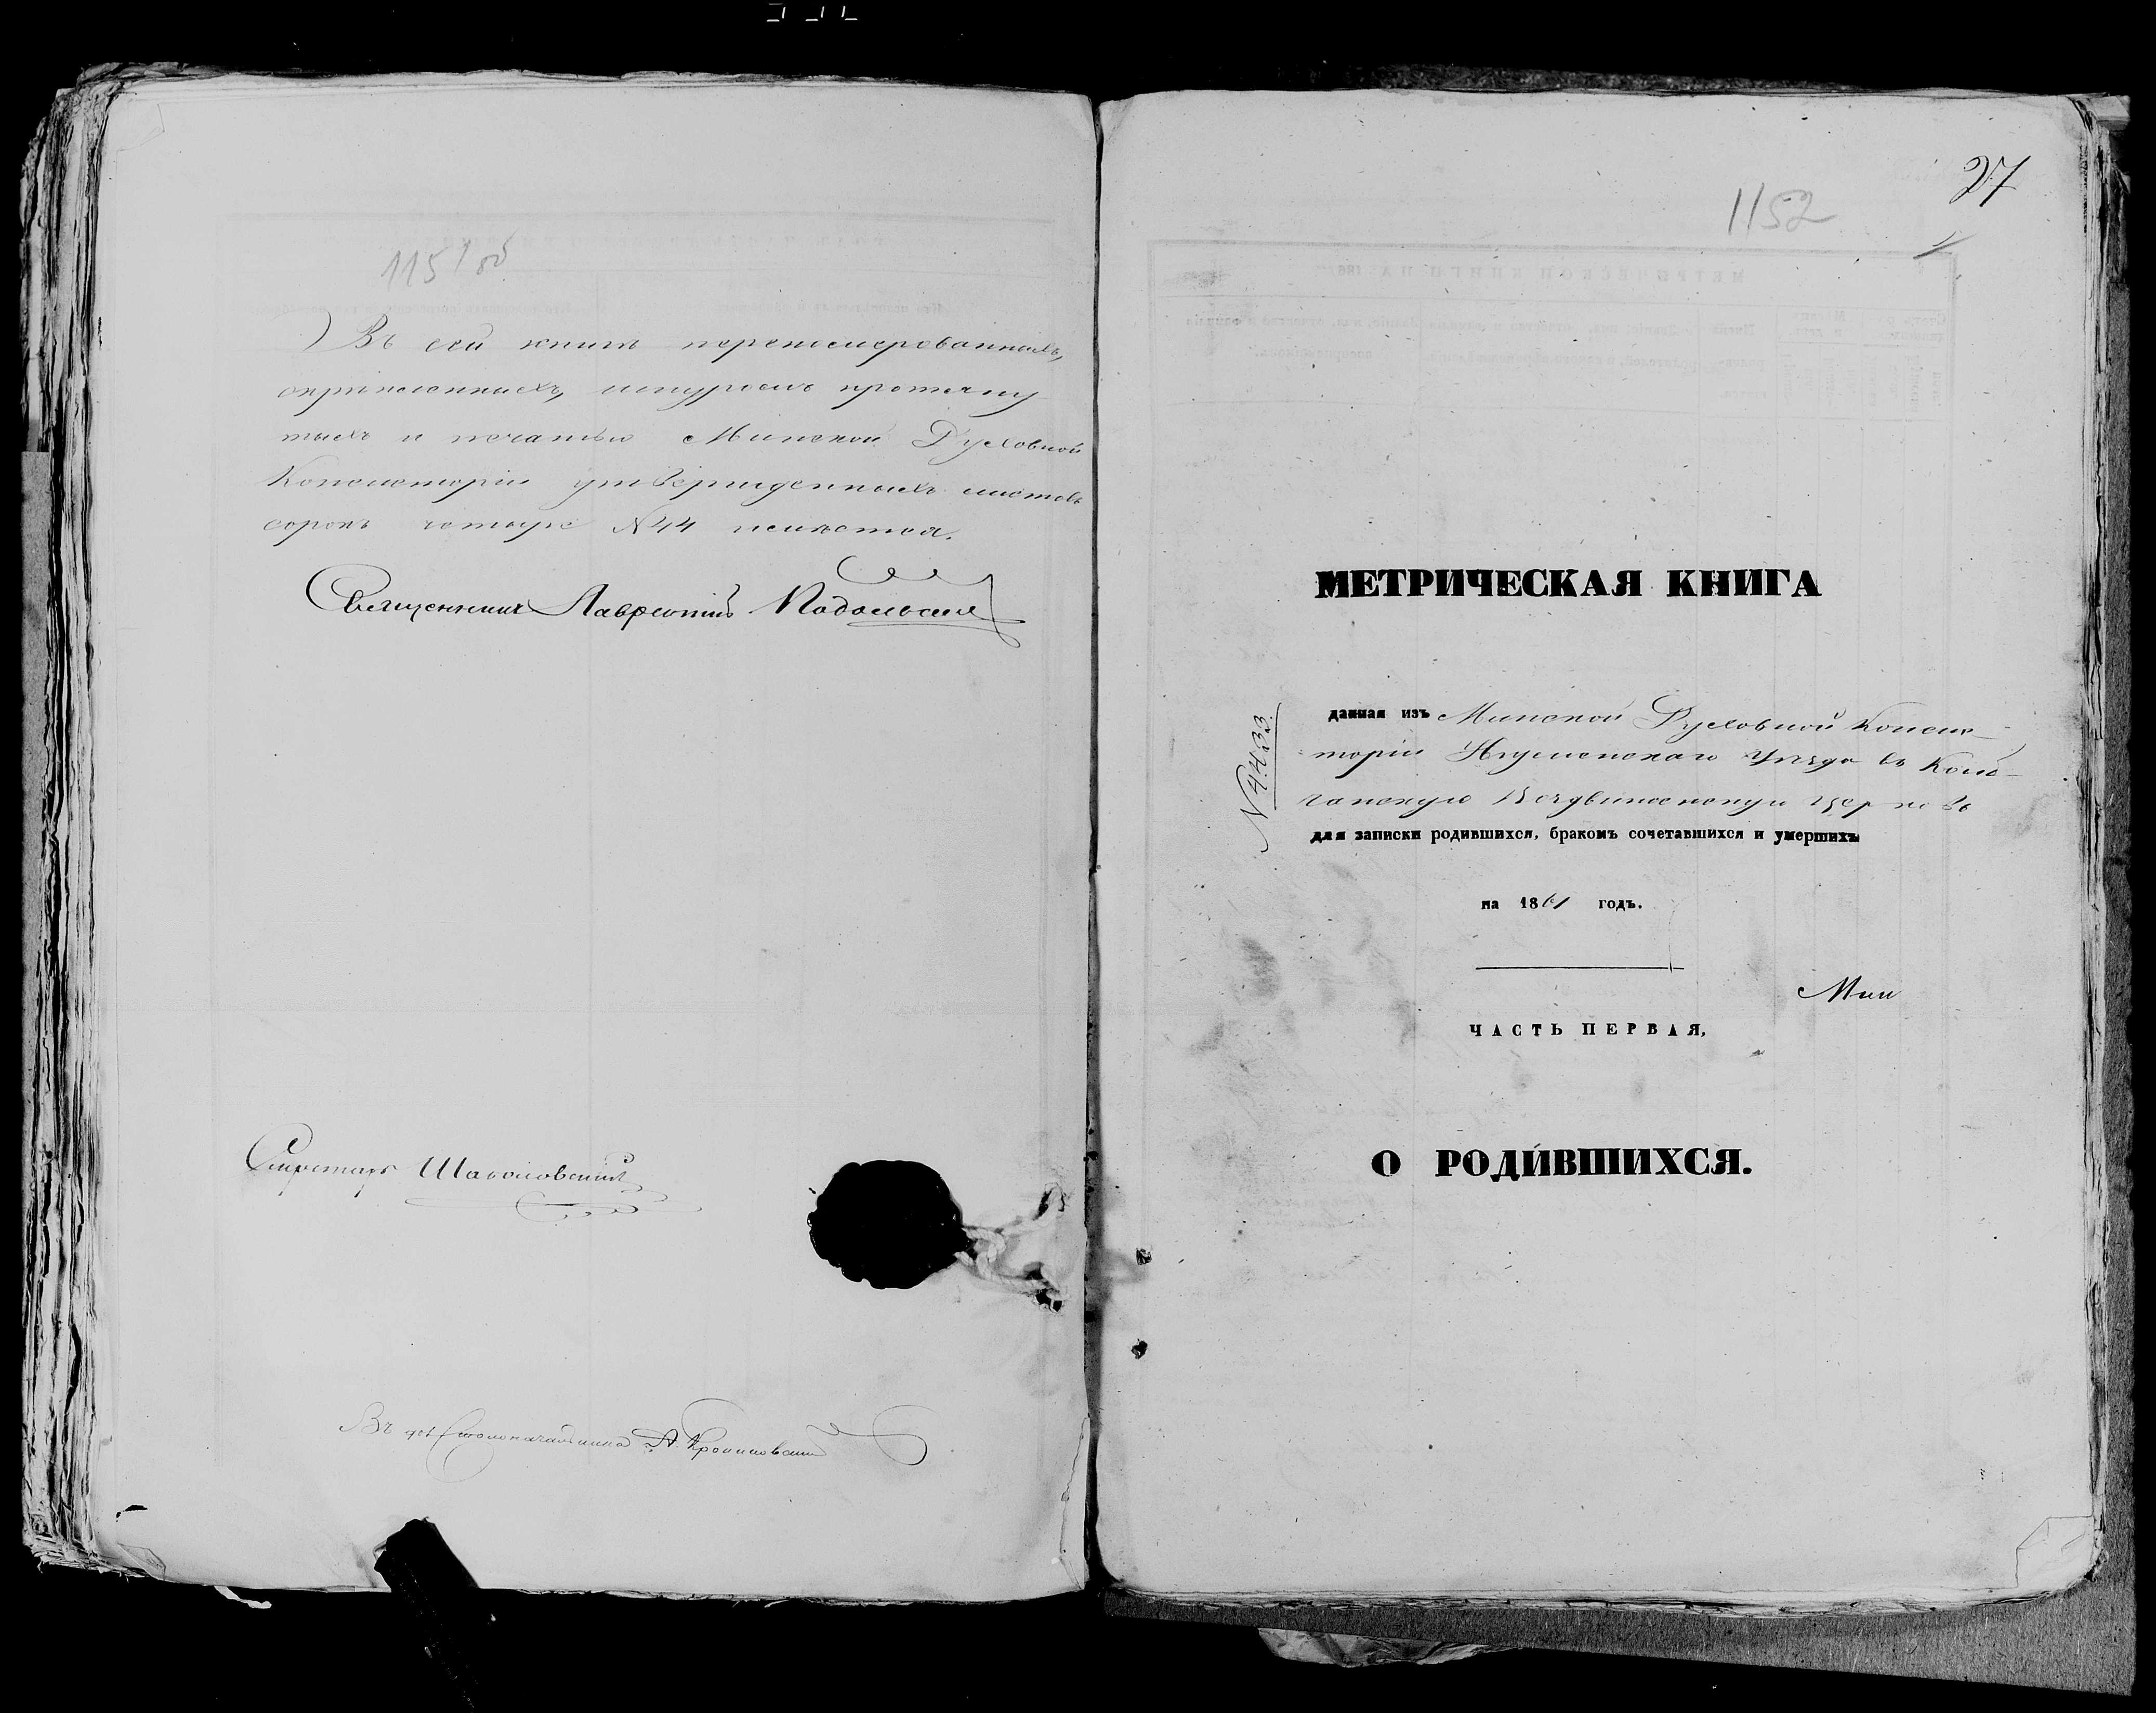 1151 об
Въ сей книгѣ перенумерованныхъ,
скрѣпленныхъ, шнуромъ протяну
тыхъ и печатью Минской Духовной
Консисторіи утвержденныхъ листовъ
сорокъ четыре №44 имѣется.
Священникъ Лаврентій Подольскій
Секретарь
Въ дол. Столоначальника А.
27
1152
1
МЕТРИЧЕСКАЯ КНИГА
данная изъ Минской Духовной Консис-
торіи Игуменскаго Уѣзда въ Кол-
чанскую Воздвиженскую Церковь
№ 4433
для записки родившихся, бракомъ сочетавшихся и умершихъ
на 1861 годъ.
Мин
ЧАСТЬ ПЕРВАЯ,
О РОДИВШИХСЯ.